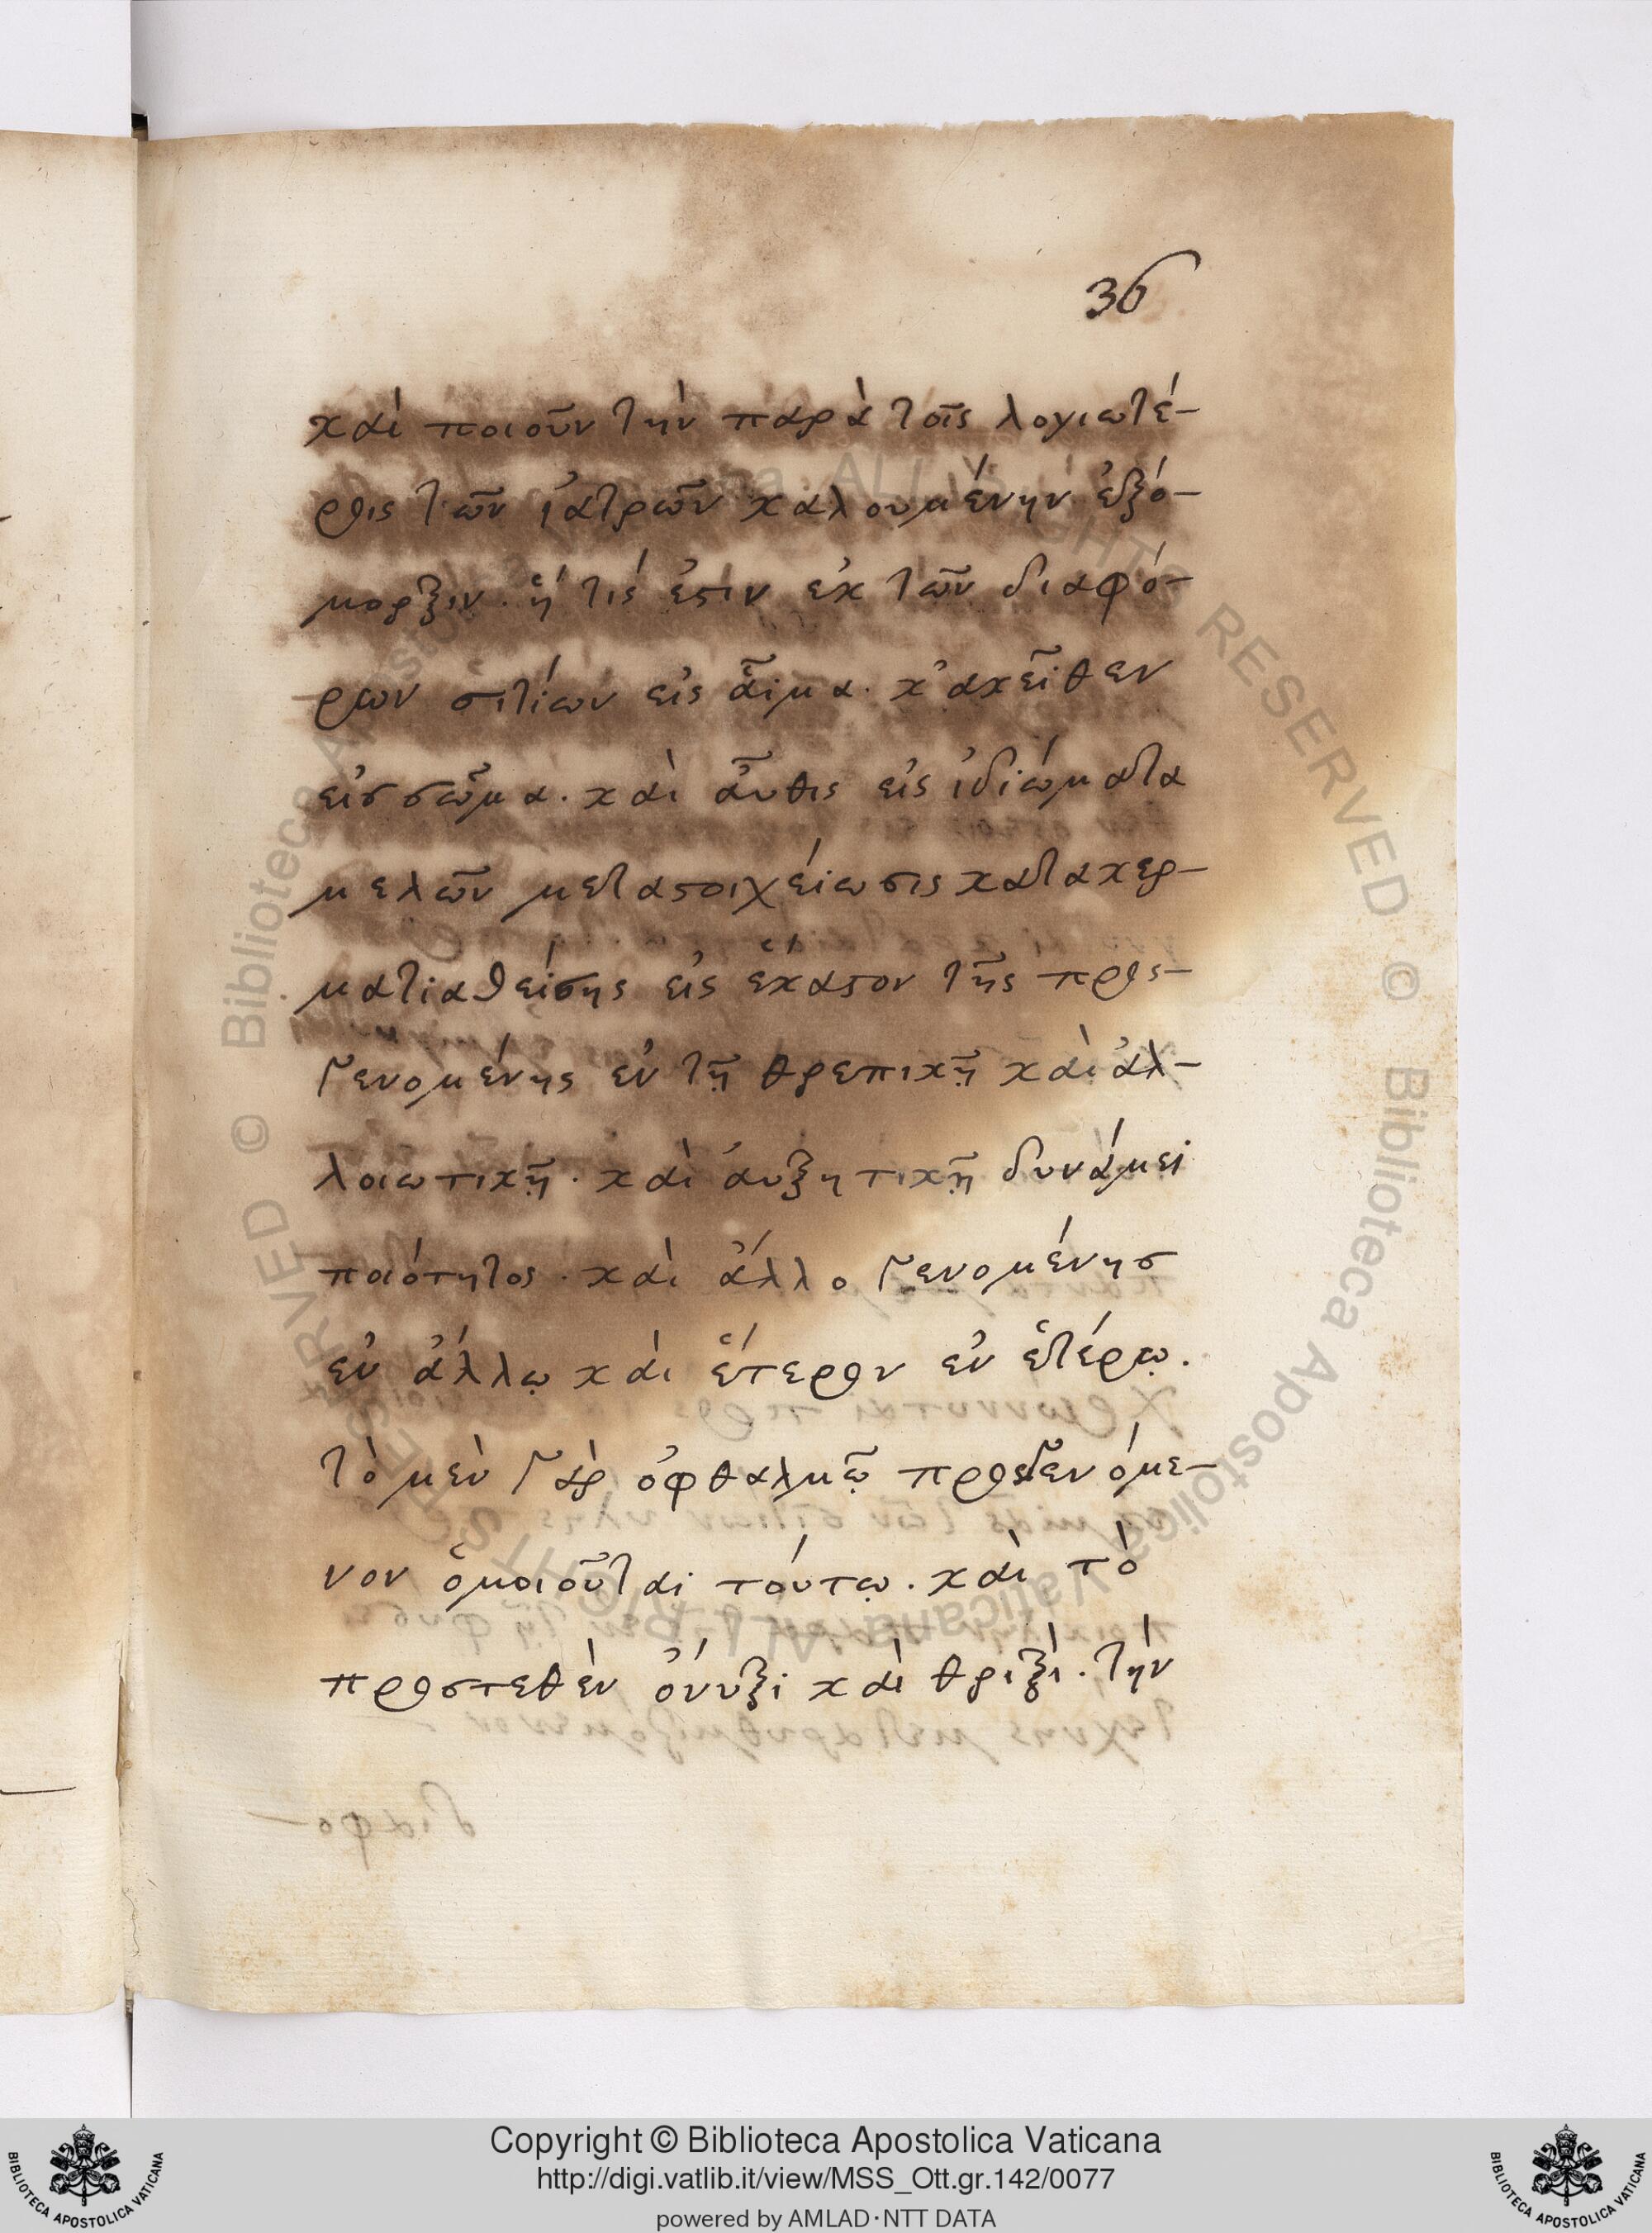 36
καὶ ποιοῦν τὴν παρὰ τοῖς λογιωτέ-
ροις τῶν ἰατρῶν καλουμένην ἐξό-
μορξιν. ἥ τίς ἐστιν ἐκ τῶν διαφό-
ρων σιτίων εἰς αἷμα. κἀκεῖθεν
εἰσ σῶμα. καὶ αὖθις εἰς ἰδιώματα
μελῶν μεταστοιχείωσις κατακερ-
ματιαθείσης εἰς ἕκαστον τῆς προς-
γενομένης ἐν τῇ θρεπικῇ καὶ ἀλ-
λοιωτικῇ. καὶ ἀυξητικῇ δυνάμει
ποιότητος. καὶ ἄλλο γενομένησ
ἐν ἄλλῳ καὶ ἕτερον ἐν ἑτέρῳ.
τὸ μὲν γὰρ ὀφθαλμῷ προσγενόμε-
νον ὁμοιοῦται τούτῳ. καὶ τὸ
προστεθὲν ὄνυξι καὶ θριξὶ. τὴν
© Biblioteca Apostolica Vaticana ALL RIGHTS RESERVED © Biblioteca Apostolica Vaticana ALL RIGHTS RESERVED
Copyright © Biblioteca Apostolica Vaticana
http://digi.vatlib.it/view/MSS_Ott.gr.142/0077
powered by AMLAD·NTT DATA
BIBLIOTECA APOSTOLICA VATICANA
BIBLIOTECA APOSTOLICA VATICANA